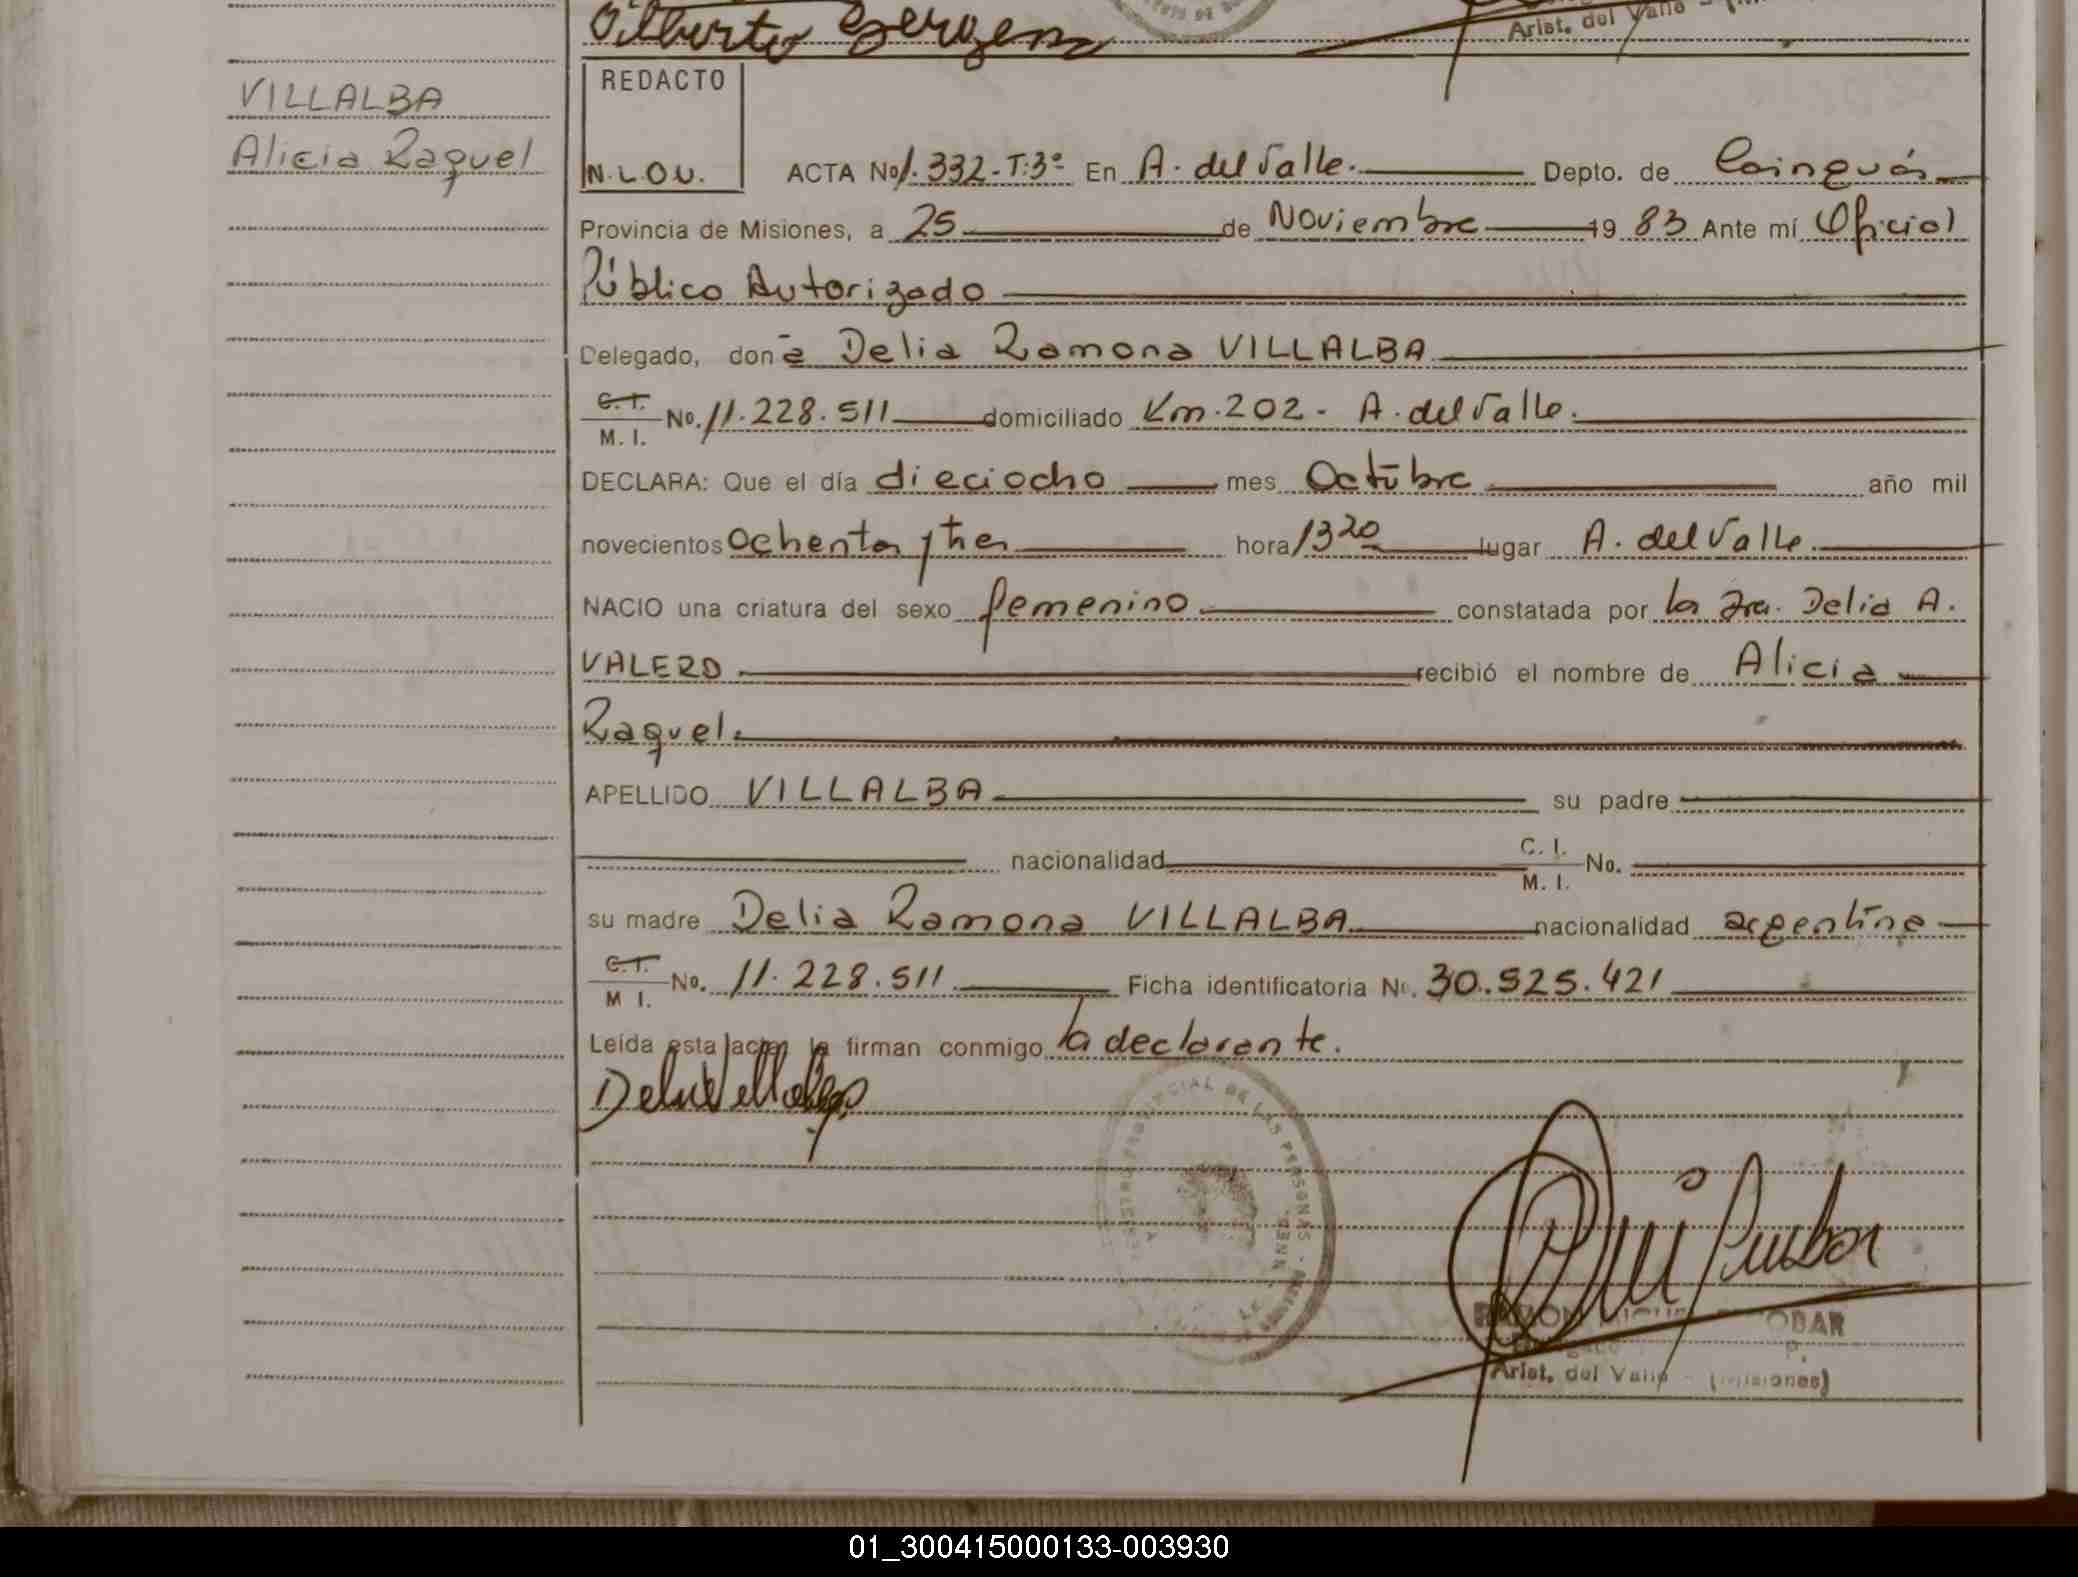 Arist. del Valle
VILLALBA
Alicia Raquel
REDACTO
N.L.O.V.
ACTA No 1.332-T:3º En A. del Valle. Depto. de Cainguás
Provincia de Misiones, a 25 de Noviembre 19 83 Ante mí Oficial
Público Autorizado
Delegado, don ã Delia Ramona VILLALBA
C.I. / M. I. No. 11.228.511 domiciliado Km.202- A. del Valle.
DECLARA: Que el día dieciocho mes Octubre año mil
novecientos Ochenta y tres hora 13 20 lugar A. del Valle
NACIO una criatura del sexo femenino constatada por la Sra. Delia A.
VALERO recibió el nombre de Alicia
Raquel.
APELLIDO VILLALBA su padre
nacionalidad C. I. / M. I. No.
su madre Delia Ramona VILLALBA nacionalidad argentina
C.I. / M I. No. 11.228.511 Ficha identificatoria No. 30.525.421
Leída esta acta la firman conmigo la declarante.
PROVINCIAL DE LAS PERSONAS
Arist. del Valle - (Misiones)
01_300415000133-003930